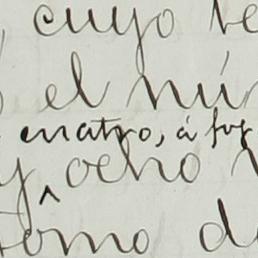 cuyo
el nú
cuatro, á
y ocho
tomo de